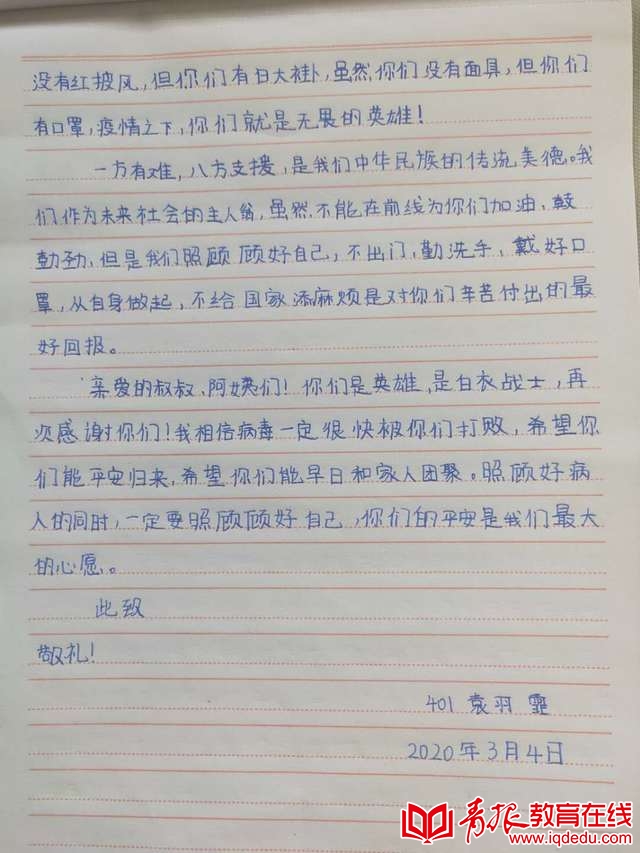 没有红披风,但你们有白大褂,虽然你们没有面具,但你们
有口罩,疫情之下,你们就是无畏的英雄!
一方有难,八方支援,是我们中华民族的传统美德。我
们作为未来社会的主人翁,虽然不能在前线为你们加油、鼓
劲,但是我们照顾顾好自己,不出门,勤洗手,戴好口
罩,从自身做起,不给国家添麻烦是对你们辛苦付出的最
好回报。
亲爱的叔叔、阿姨们!你们是英雄,是白衣战士,再
次感谢你们!我相信病毒一定很快被你们打败,希望你
们能平安归来,希望你们能早日和家人团聚。照顾好病
人的同时,一定要照顾顾好自己,你们的平安是我们最大
的心愿。
此致
敬礼!
401 袁羽霏
2020年3月4日
青报教育在线
www.iqdedu.com